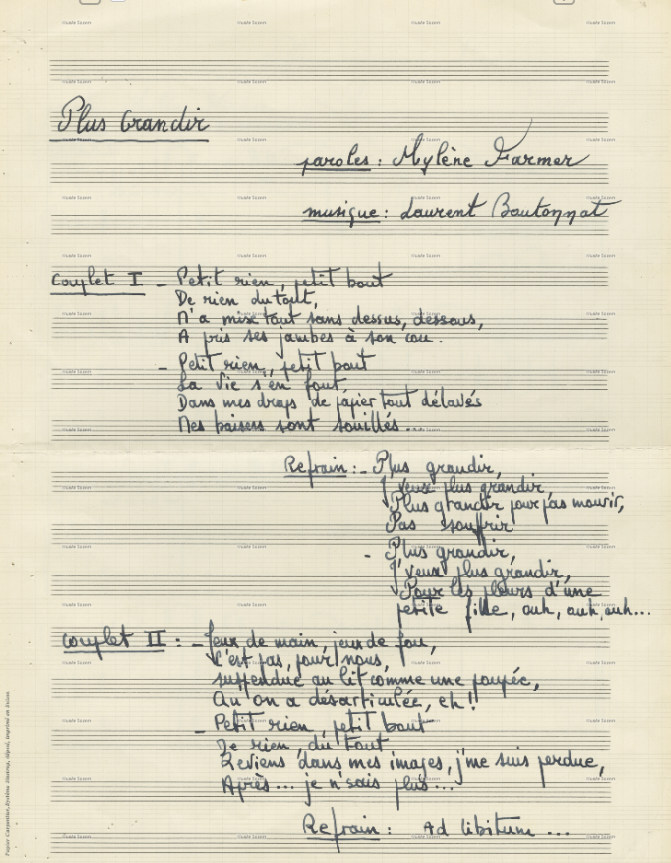 Plus Grandir
paroles : Mylène Farmer
musique : Laurent Boutonnat
Couplet I - Petit rien, petit bout
De rien du tout,
M'a mise tout sans dessus, dessous,
A pris ses jambes à son cou.
- Petit rien, petit bout
La vie s'en fout
Dans mes draps de papier tout délavés
Mes baisers sont souillés...
Refrain : - Plus grandir,
J'veux plus grandir,
Plus grandir pour pas mourir,
Pas souffrir
- Plus grandir,
J'veux plus grandir,
Pour les pleurs d'une
petite fille, ouh, ouh, ouh...
Couplet II : - Jeux de main, jeux de fou,
C'est pas, pour nous,
suspendue au lit comme une poupée,
Qu'on a désarticulée, eh !!
- Petit rien, petit bout
De rien, du tout
Reviens dans mes images, j'me suis perdue,
Après... je n'sais plus...
Refrain : Ad libitum ...
Papier Carpentier, Système